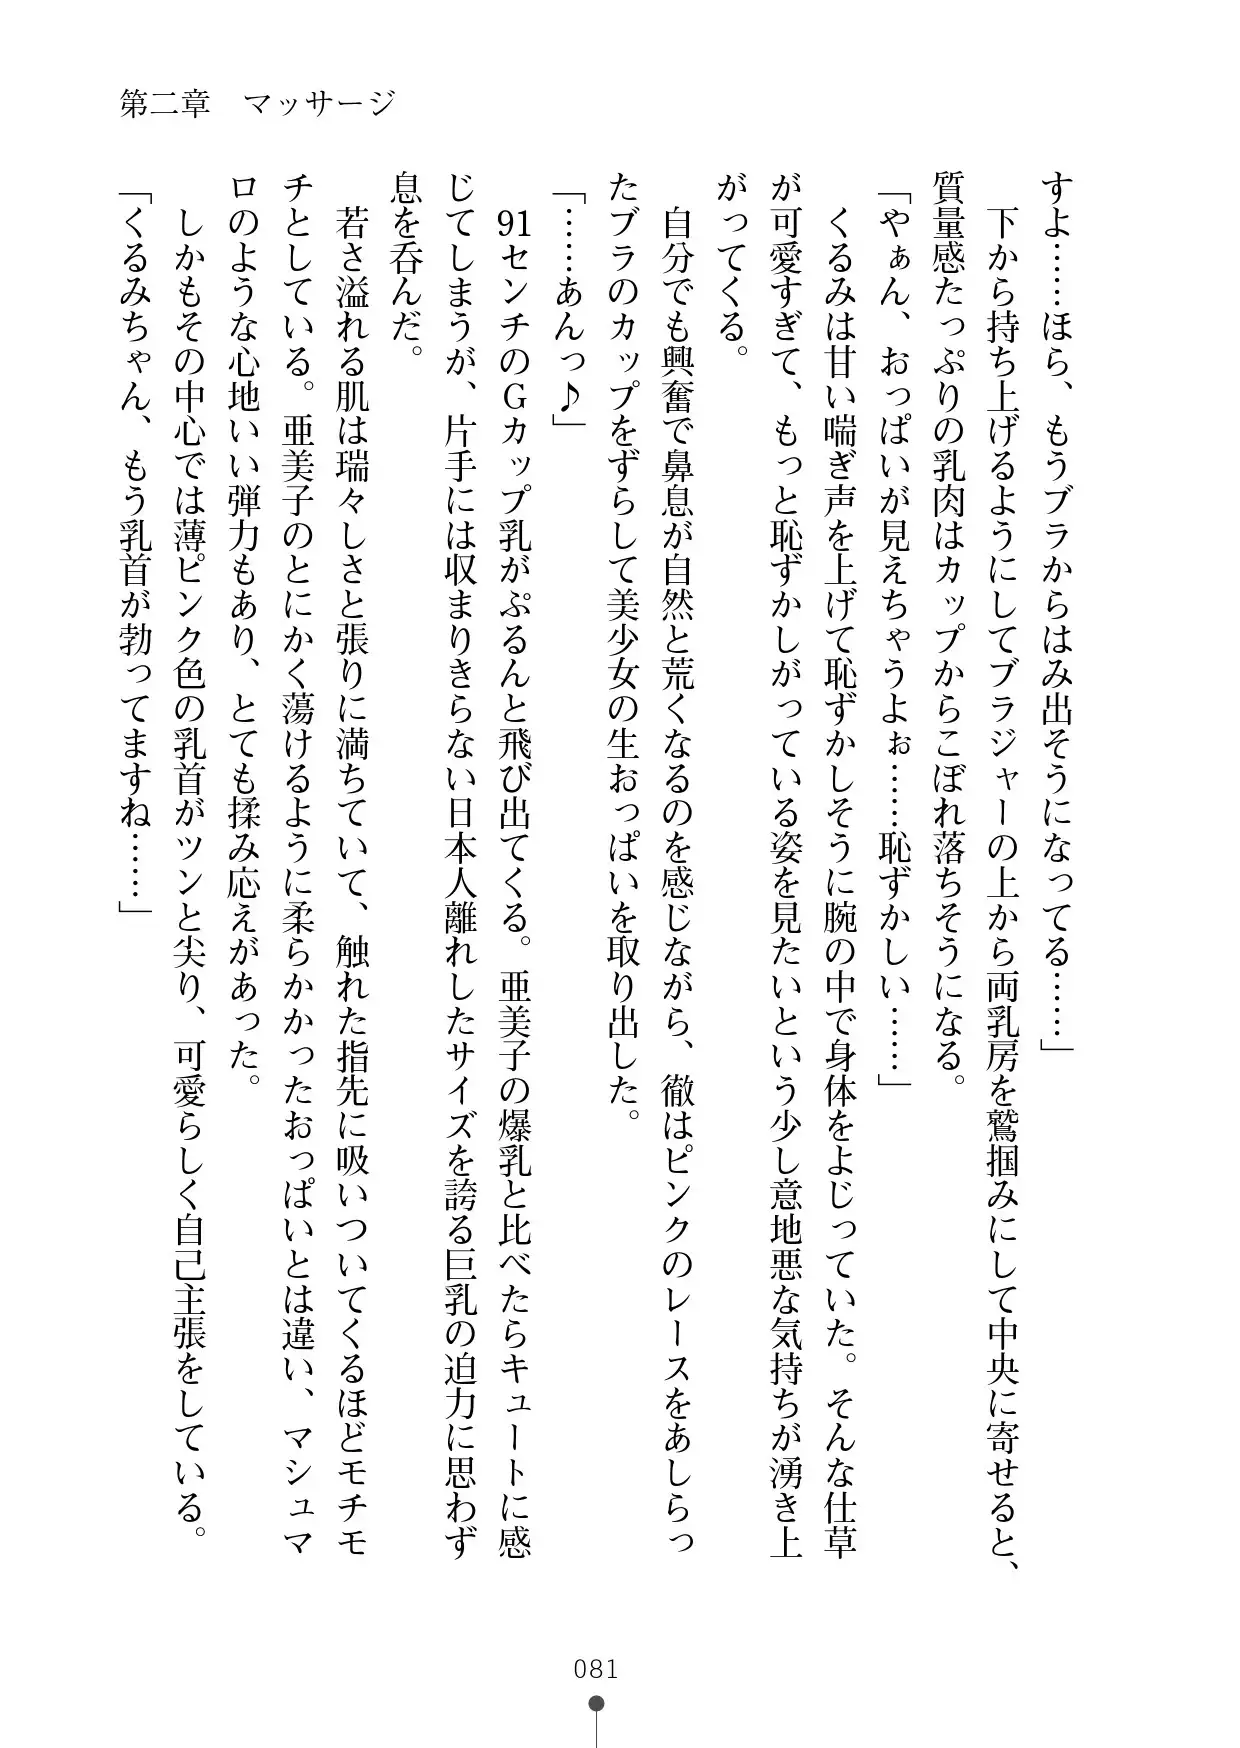 第二章　マッサージ
すよ……ほら、もうブラからはみ出そうになってる……」
下から持ち上げるようにしてブラジャーの上から両乳房を鷲掴みにして中央に寄せると、
質量感たっぷりの乳肉はカップからこぼれ落ちそうになる。
「やぁん、おっぱいが見えちゃうよぉ……恥ずかしい……」
くるみは甘い喘ぎ声を上げて恥ずかしそうに腕の中で身体をよじっていた。そんな仕草
が可愛すぎて、もっと恥ずかしがっている姿を見たいという少し意地悪な気持ちが湧き上
がってくる。
自分でも興奮で鼻息が自然と荒くなるのを感じながら、徹はピンクのレースをあしらっ
たブラのカップをずらして美少女の生おっぱいを取り出した。
「……あんっ♪」
91センチのＧカップ乳がぷるんと飛び出てくる。亜美子の爆乳と比べたらキュートに感
じてしまうが、片手には収まりきらない日本人離れしたサイズを誇る巨乳の迫力に思わず
息を呑んだ。
若さ溢れる肌は瑞々しさと張りに満ちていて、触れた指先に吸いついてくるほどモチモ
チとしている。亜美子のとにかく蕩けるように柔らかかったおっぱいとは違い、マシュマ
ロのような心地いい弾力もあり、とても揉み応えがあった。
しかもその中心では薄ピンク色の乳首がツンと尖り、可愛らしく自己主張をしている。
「くるみちゃん、もう乳首が勃ってますね……」
081